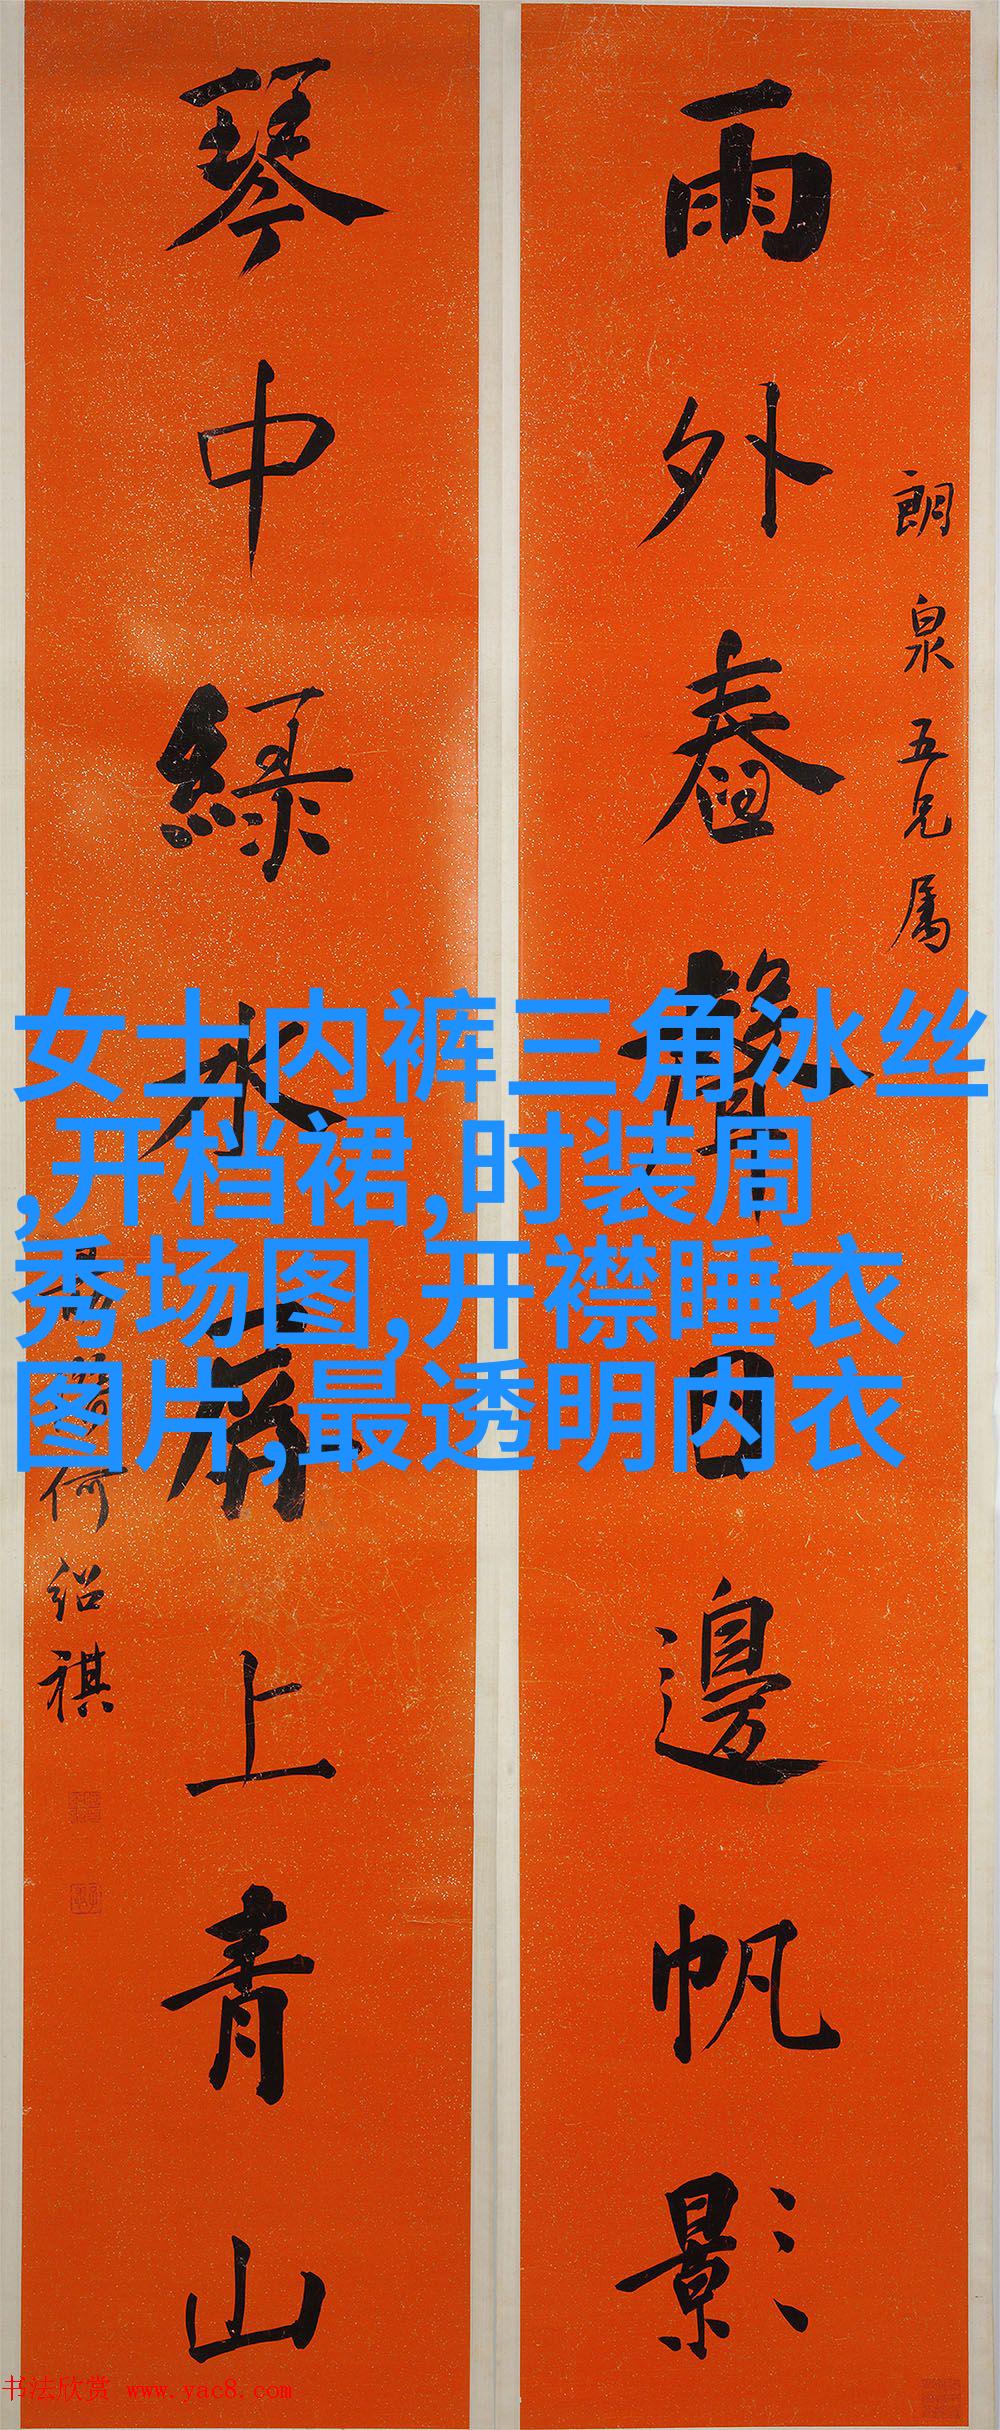 朗泉五兄属
雨外舂聲日邊帆影
琴中綠水屏上青山
何紹祺
女士内裤三角冰丝
,开档裙,时装周
秀场图,开襟睡衣
图片,最透明内衣
书法欣赏 www.yac8.com